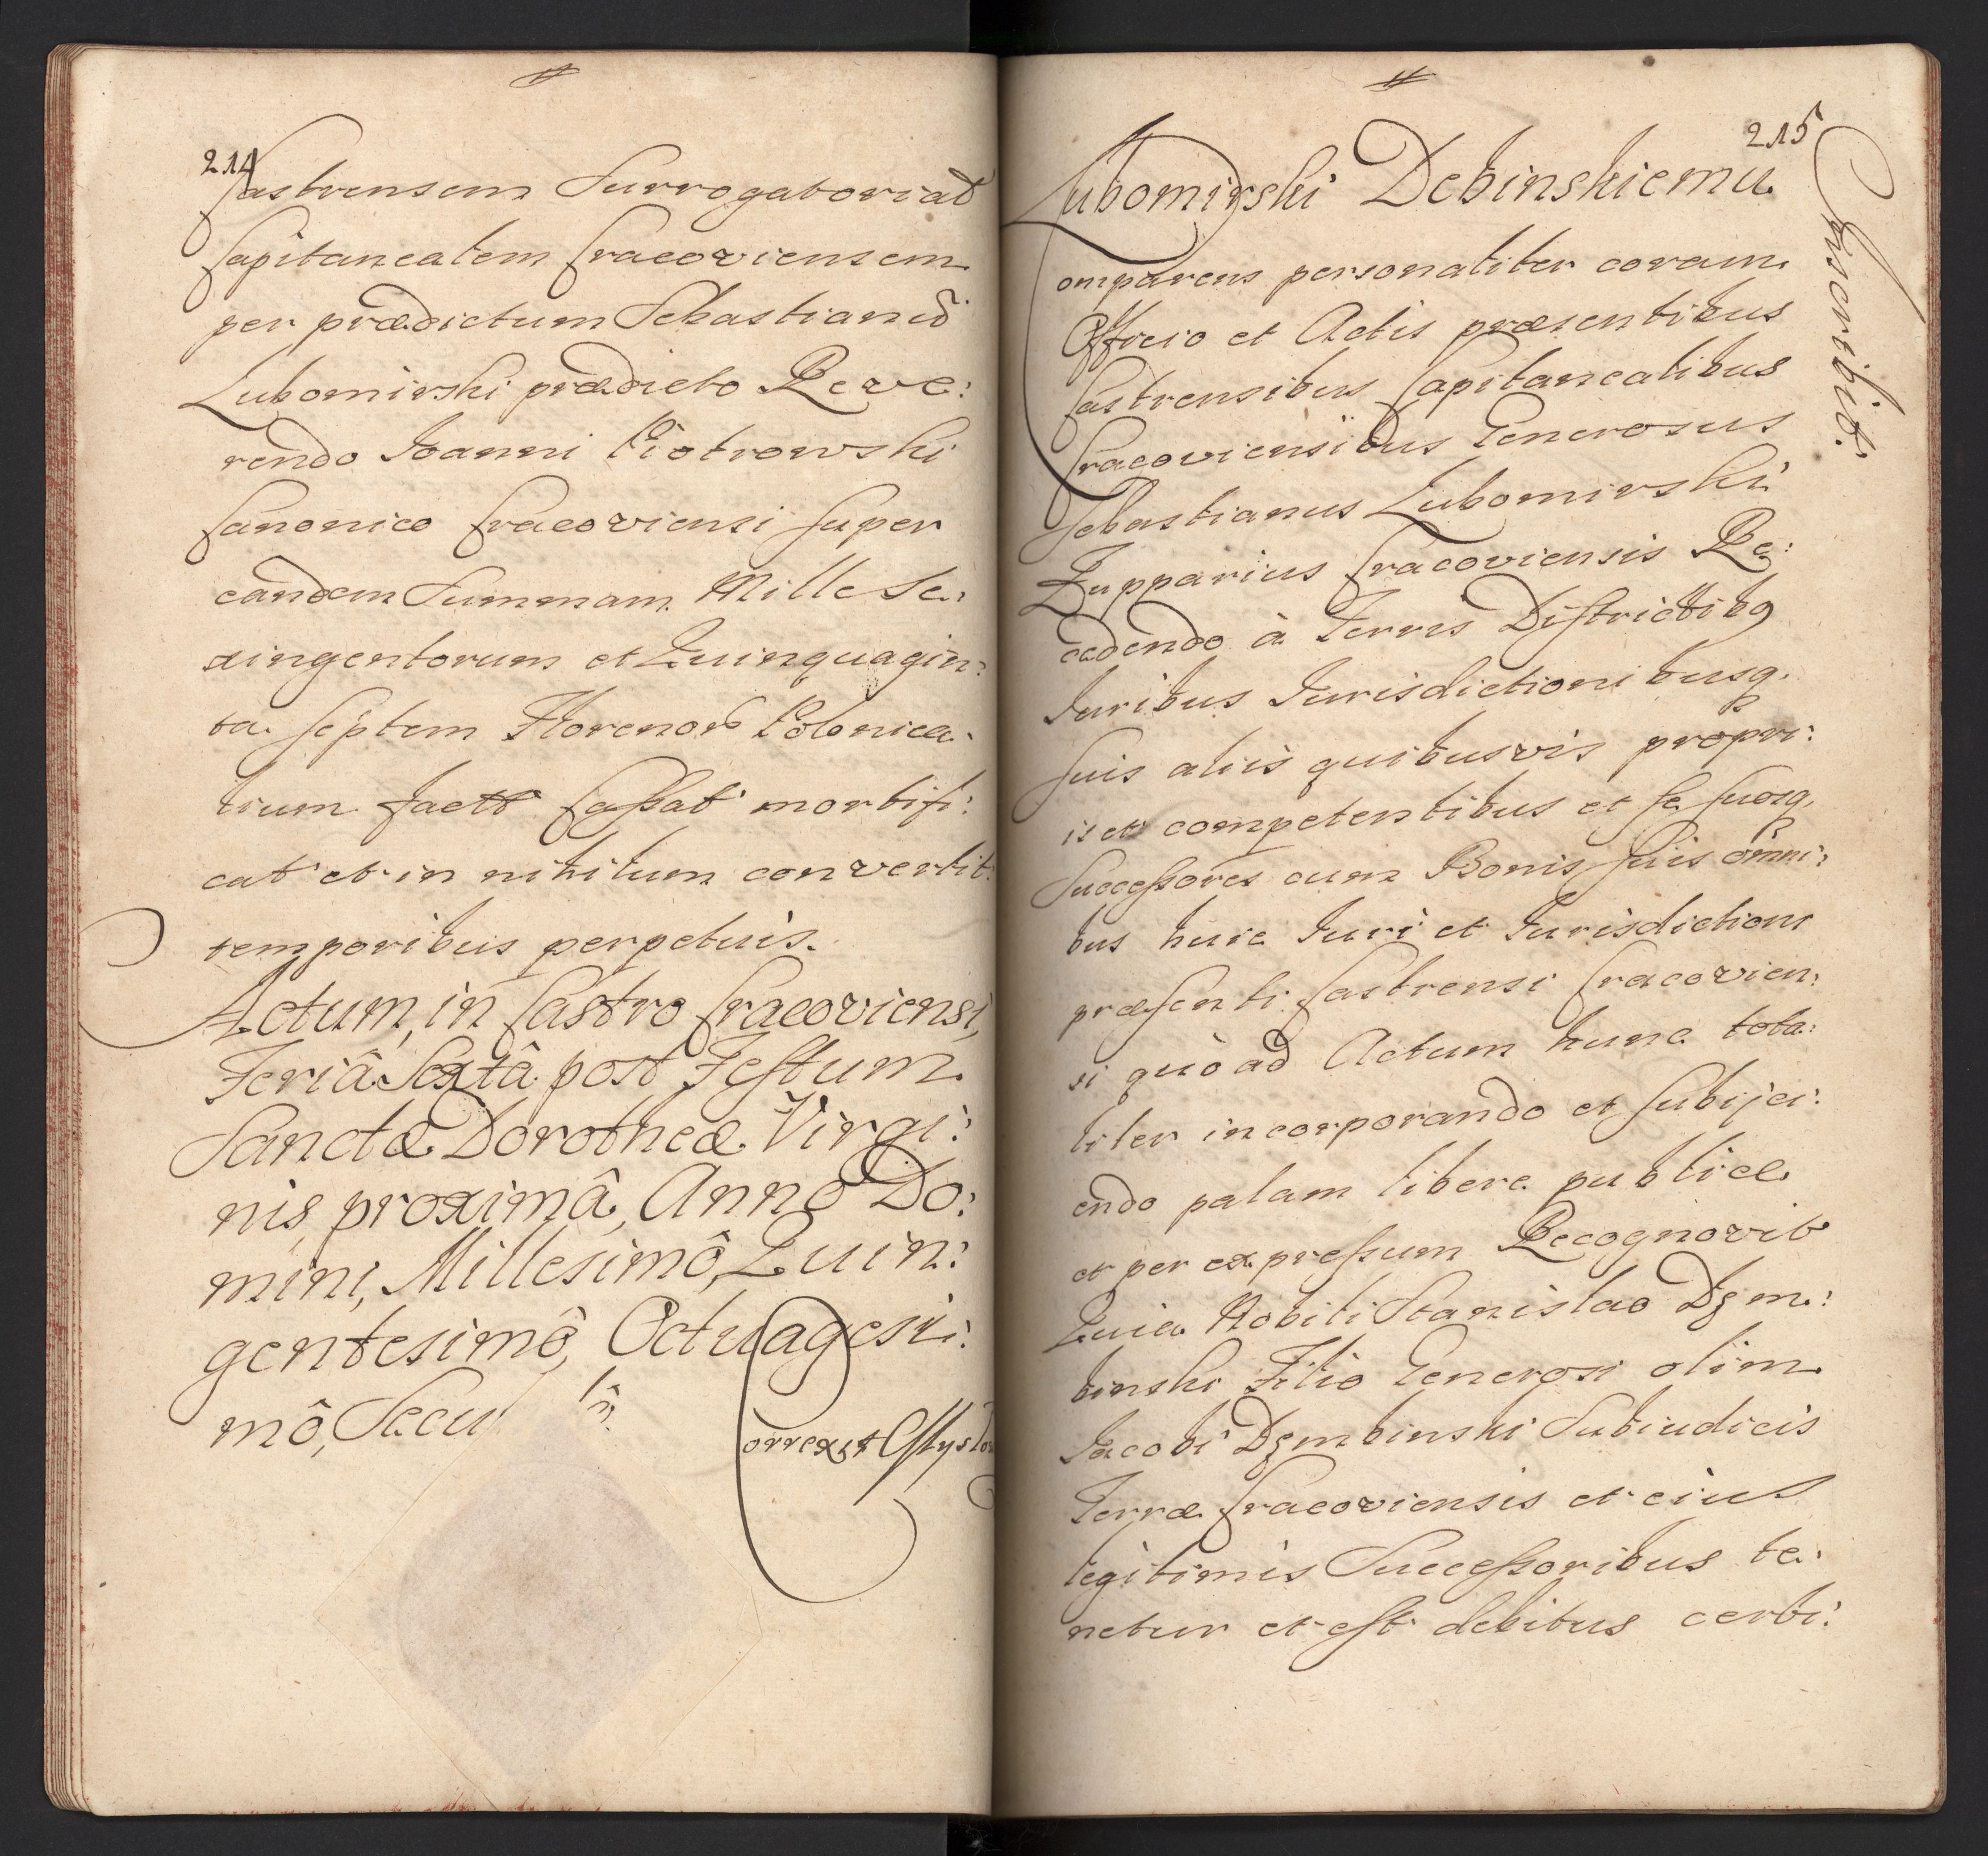 214
Castrensem Surrogatoriat
Capitanealem Cracoviensem
per prædictum Sebastianũ
Lubomirski prædicto Reve:
rendo Ioanni Piotrowski
Canonico Cracoviensi super
eandem Summam Mille Se:
xingentorum et Quinquagin:
ta septem Florenor Polonica:
lium fact Cassat mortifi:
cat et in nihilum convertit
temporibus perpetuis.
Actum, in Castro Cracoviensi,
Feriâ Sextâ post Festum
Sanctæ Dorotheæ Virgi:
nis, proximâ, Annô Do:
mini, Millesimô, Quin:
gentesimô, Octuagesi:
mô, Secu
Correxit
215
Lubomirski Debinskiemu
Inscribit.
Comparens personaliter coram
Officio et Actis præsentibus
Castrensibus Capitanealibus
Cracoviensibus Generosus
Sebastianus Lubomirski
Zupparius Cracoviensis Re:
cedendo à Terris Districtibq
Iuribus Iurisdictionibusq.
suis aliis quibusvis propri:
is et competentibus et se suosq.
Successores cum Bonis suis omni:
bus huic Iuri et Iurisdictioni
præsenti Castrensi Cracovien:
si quò ad Actum hunc tota:
liter incorporando et subijci:
endo palam libere publice
et per expressum Recognovit
Quia Nobili Stanislao Dęm:
binski Filio Generosi olim
Iacobi Dęmbinski Subiudicis
Terræ Cracoviensis et eius
legitimis Successoribus te:
netur et est debitus certi: